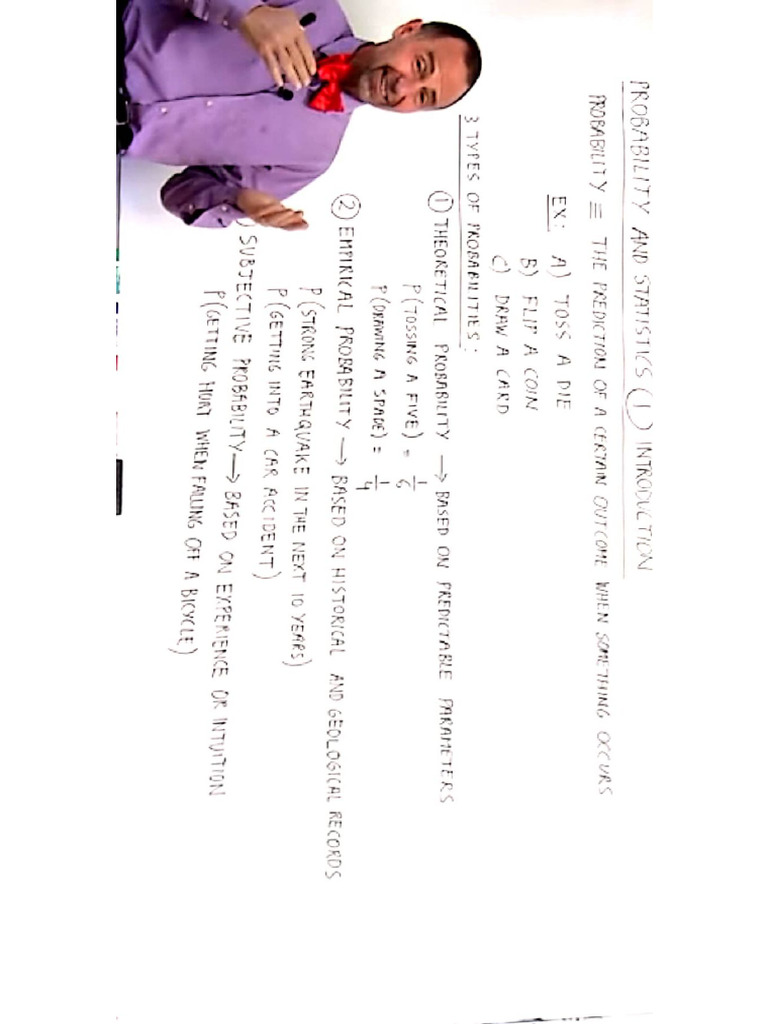 PROBABILITY AND STATISTICS ① INTRODUCTION
PROBABILITY ≡ THE PREDICTION OF A CERTAIN OUTCOME WHEN SOMETHING OCCURS
EX: A) TOSS A DIE
B) FLIP A COIN
C) DRAW A CARD
3 TYPES OF PROBABILITIES:
① THEORETICAL PROBABILITY → BASED ON PREDICTABLE PARAMETERS
P(TOSSING A FIVE) = 1/6
P(DRAWING A SPADE) = 1/4
② EMPIRICAL PROBABILITY → BASED ON HISTORICAL AND GEOLOGICAL RECORDS
P(STRONG EARTHQUAKE IN THE NEXT 10 YEARS)
P(GETTING INTO A CAR ACCIDENT)
SUBJECTIVE PROBABILITY → BASED ON EXPERIENCE OR INTUITION
P(GETTING HURT WHEN FALLING OFF A BICYCLE)